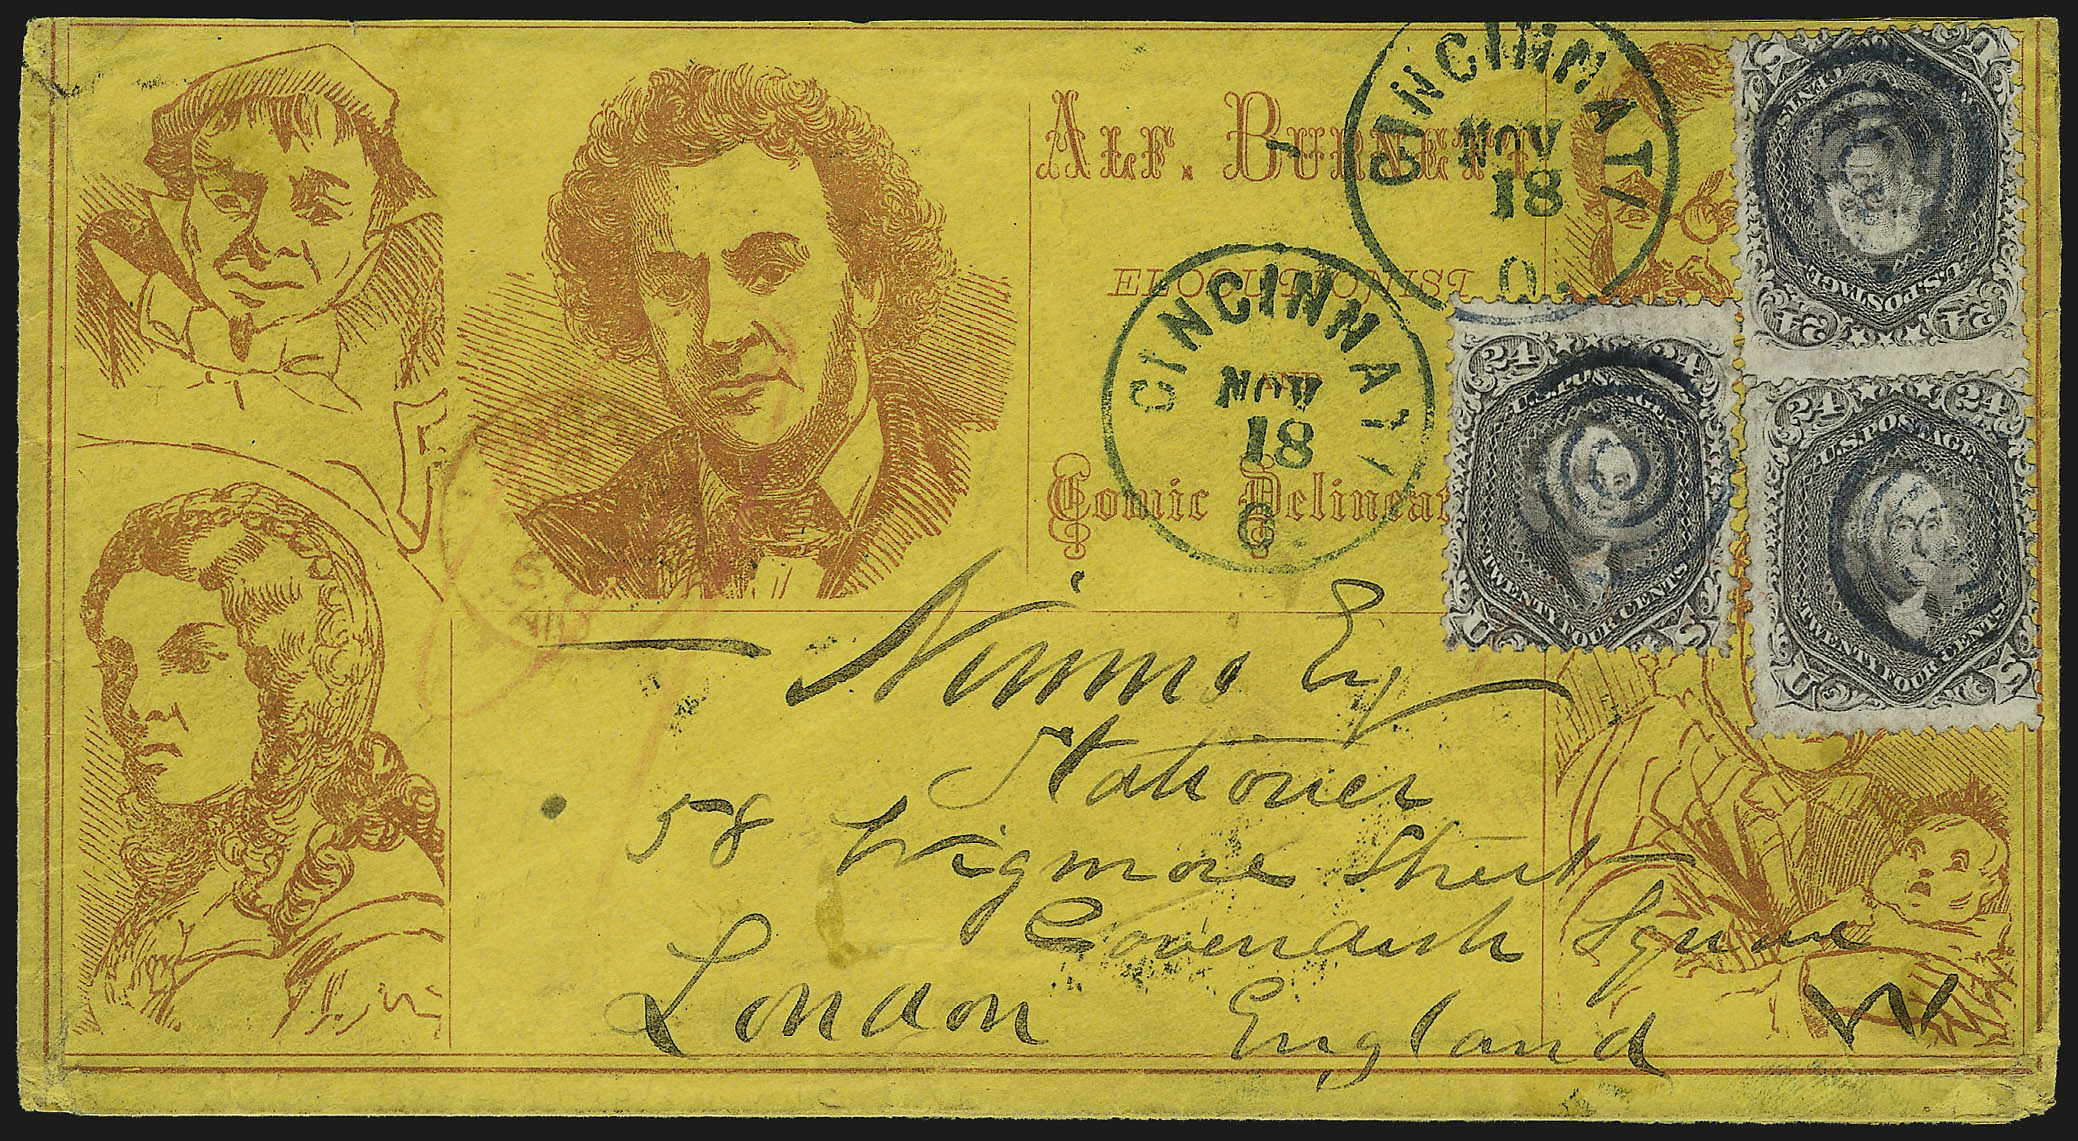 ALF. BURNETT,
ELOCUTIONIST
AND
Comic Delinear
CINCINNATI
NOV
18
O.
CINCINNATI
NOV
18
O
24 CENTS
U.S. POSTAGE
24 24
24 24
U.S. POSTAGE
TWENTY FOUR CENTS
U S
24 24
U.S. POSTAGE
TWENTY FOUR CENTS
U S
PAID
Nimmo Esq
Stationer
58 Wigmore Street
Cavendish Square
London England W